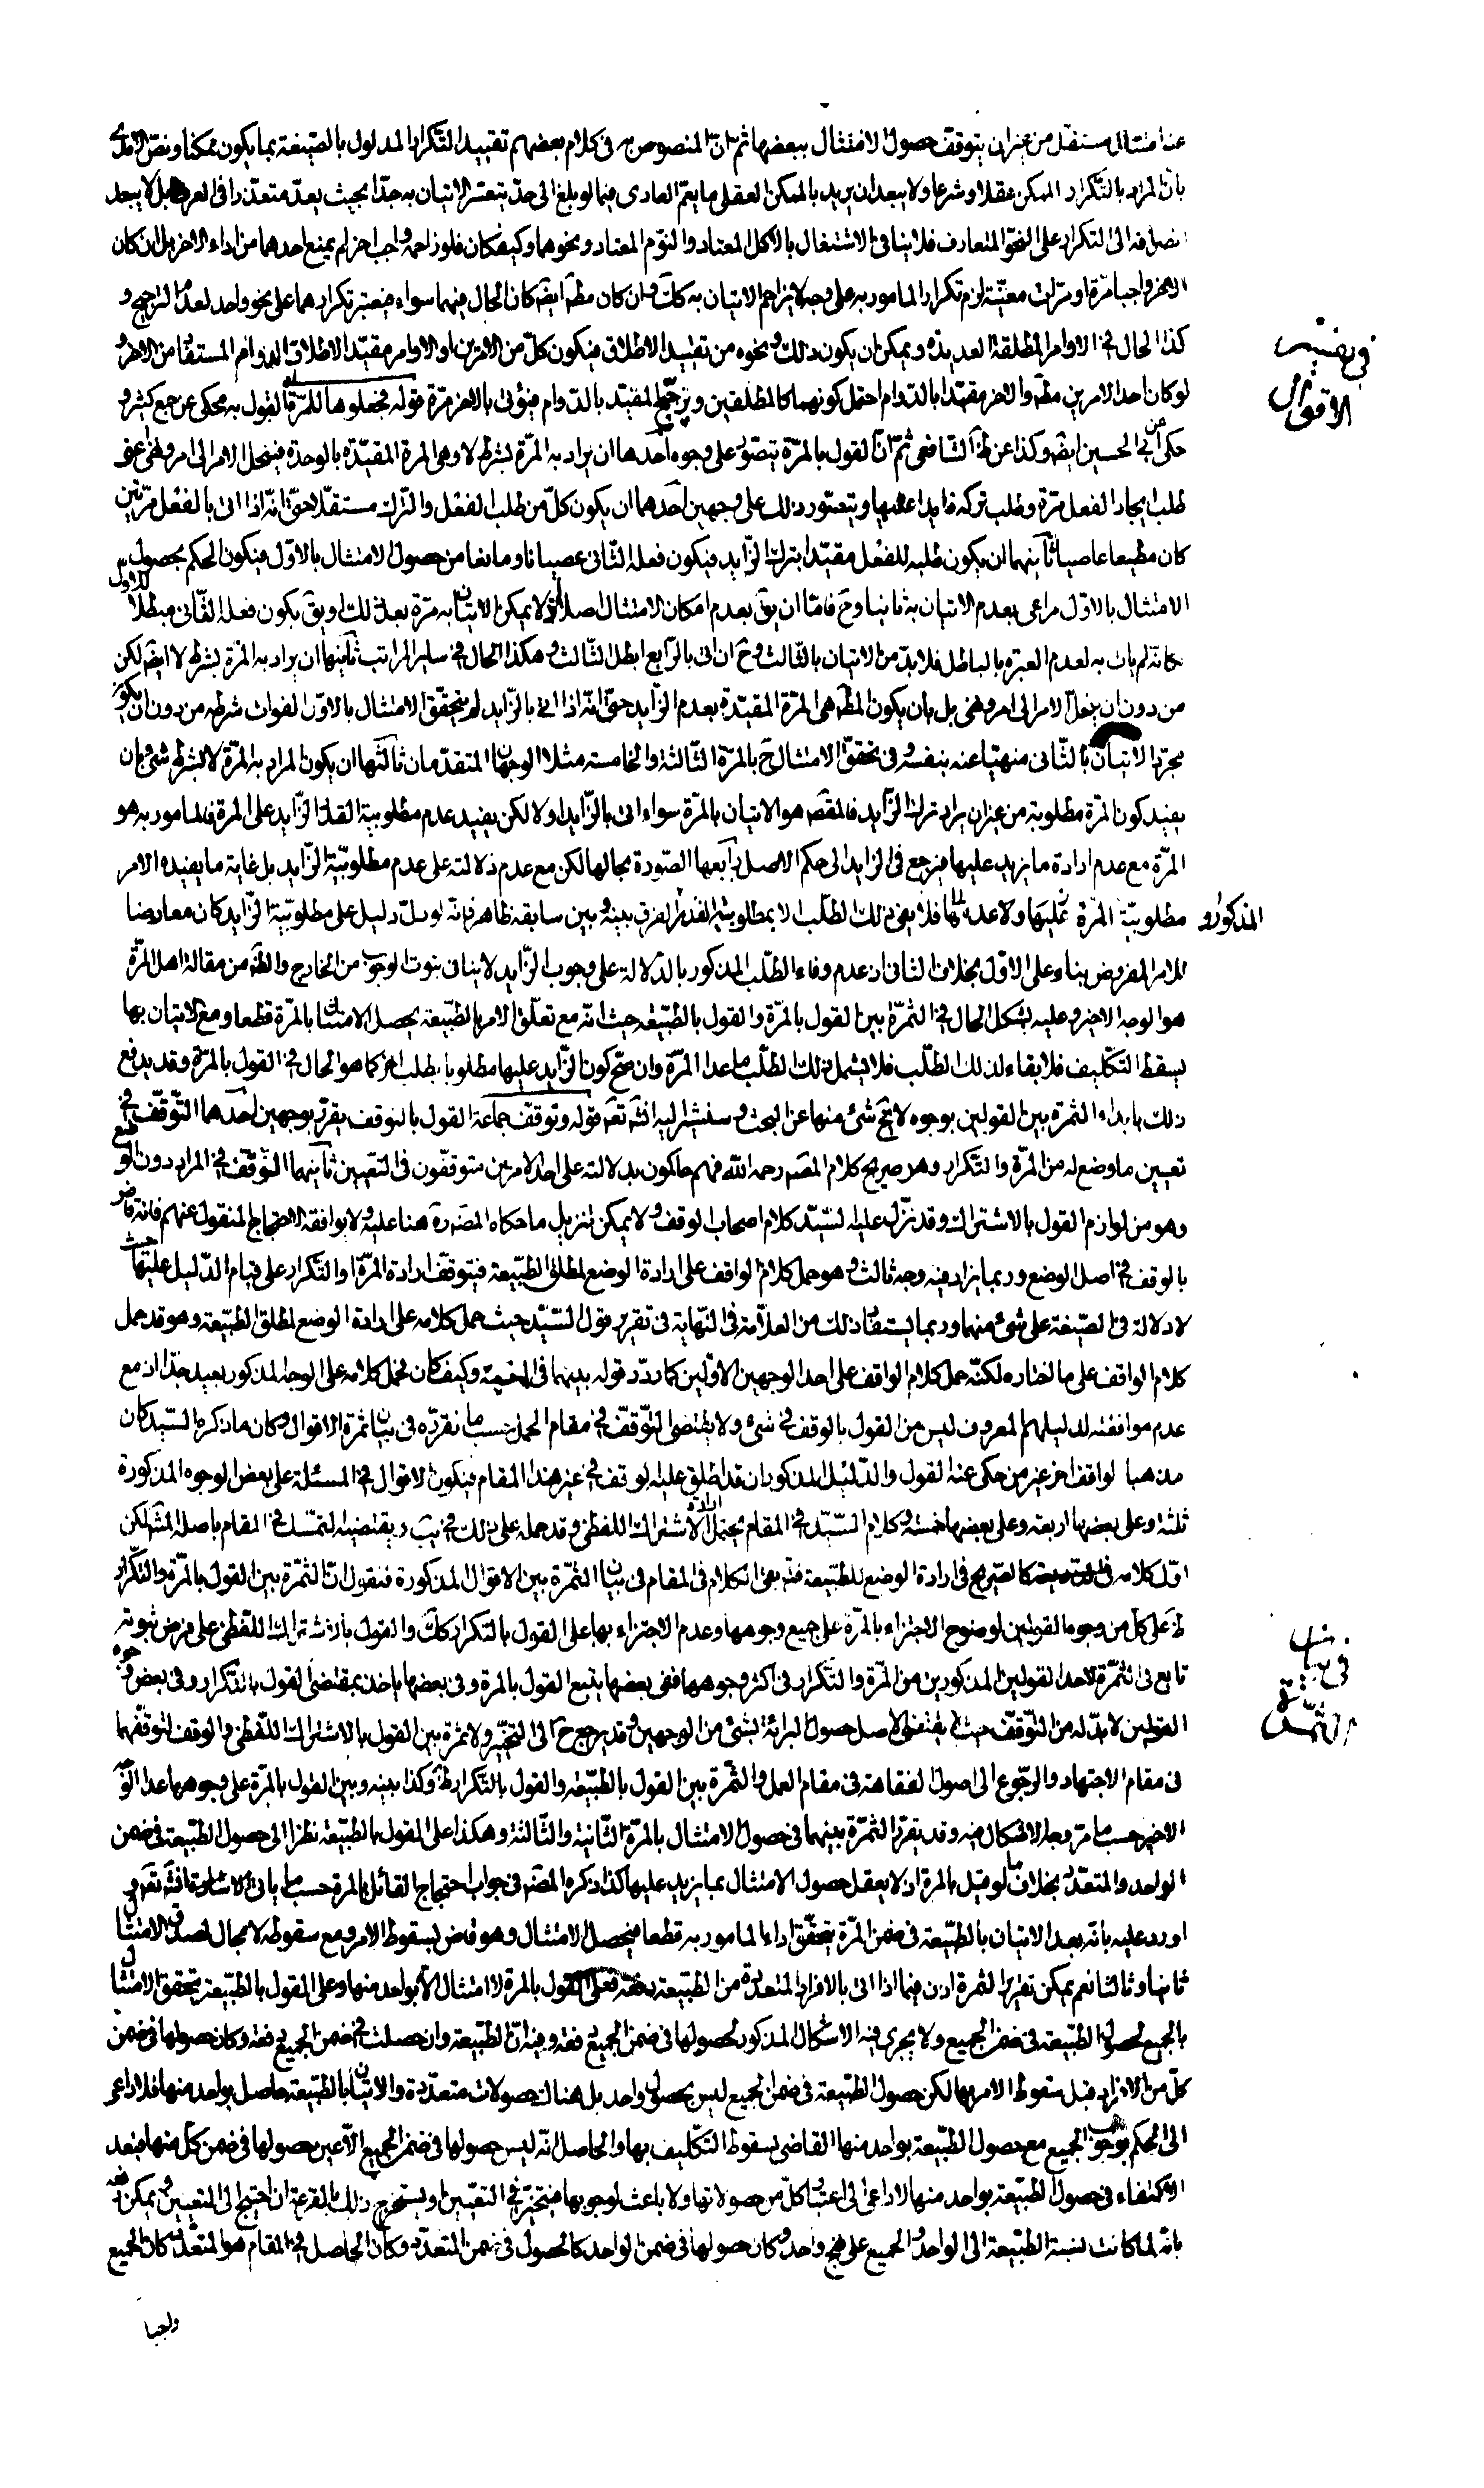 عنه امتثال مستقل من غير ان يتوقف حصول الامتثال ببعضها ثم ان المنصوص به فى كلام بعضهم تقييد التكرار المدلول بالصيغة بما يكون ممكنا ونص الامدى
بان المراد بالتكرار الممكن عقلا وشرعا ولا يبعد ان يريد بالممكن العقلى ما يعم العادى فيما لو بلغ الى حد يتعسر الاتيان به جدا بحيث يعد متعذرا فى العرف بل لا يبعد
انصرافه الى التكرار على النحو المتعارف فلا ينافى الاشتغال بالاكل المعتاد والنوم المعتاد ونحوهما وكيف كان فلو زاحمه واجب اخر لم يمنع احدهما من اداء الاخر بل ان كان
الاخر واجبا مرة او مرات معينة لزم تكرار المامور به على وجه لا يزاحم الاتيان به كك وان كان مطلقا ايضا كان الحال فيهما سواء فيعتبر تكرارهما على نحو واحد لعدم الترجيح و
كذا الحال فى الاوامر المطلقة العديدة ويمكن ان يكون ذلك ونحوه من تقييد الاطلاق فيكون كل من الامرين او الاوامر مقيدا لاطلاق الدوام المستفاد من الاخر و
لو كان احد الامرين مطم والاخر مقيدا بالدوام احتمل كونهما كالمطلقين وترجيح المقيد بالدوام فيؤتى بالاخر مرة قوله فجعلوها للمرة القول به محكى عن جمع كثير و
حكى عن ابى الحسين ايضم وكذا عن ظ الشافعى ثم ان القول بالمرة يتصور على وجوه احدها ان يراد به المرة بشرط لا وهى المرة المقيدة بالوحدة فينحل الامر الى امر ونهى اعنى
طلب ايجاد الفعل مرة وطلب تركه زايدا عليها ويتصور ذلك على وجهين احدهما ان يكون كل من طلب الفعل والترك مستقلا حتى انه اذا اتى بالفعل مرتين
كان مطيعا عاصيا ثانيهما ان يكون طلبه للفعل مقيدا بترك الزايد فيكون فعله الثانى عصيانا ومانعا من حصول الامتثال بالاول فيكون الحكم بحصول
الامتثال بالاول مراعى بعدم الاتيان به ثانيا وح فاما ان يق بعدم امكان الامتثال اصلا اذ لا يمكن الاتيان به مرة بعد ذلك او يق بكون فعله الثانى مبطلا للاول
فكانه لم يات به لعدم العبرة بالباطل فلا بد من الاتيان بالثالث وح ان اتى بالرابع ابطل الثالث وهكذا الحال فى ساير المراتب ثانيها ان يراد به المرة بشرط لا ايضم لكن
من دون ان ينحل الامر الى امر ونهى بل بان يكون المطم هى المرة المقيدة بعدم الزايد حتى انه اذا اتى بالزايد لم يتحقق الامتثال بالاول لفوات شرطه من دون ان يكون
مجرد الاتيان بالثانى منهيا عنه بنفسه وفى تحقق الامتثال ح بالمرة الثالثة والخامسة مثلا الوجهان المتقدمان ثالثها ان يكون المراد به المرة لا بشرط شئ بان
يفيد كون المرة مطلوبة من غير ان يراد ترك الزايد فالمقصم هو الاتيان بالمرة سواء اتى بالزايد او لا لكن يفيد عدم مطلوبية القدر الزايد على المرة فالمامور به هو
المرة مع عدم ارادة ما يزيد عليها فيرجع فى الزايد الى حكم الاصل رابعها الصورة بحالها لكن مع عدم دلالته على عدم مطلوبية الزايد بل غاية ما يفيده الامر
مطلوبية المرة فلا يفى ذلك الطلب الا بمطلوبية القدر المذكور والفرق بينه وبين سابقه ظاهر فانه لو دل دليل على مطلوبية الزايد كان معارضا
للامر المفروض بناء على الاول بخلاف الثانى اذ عدم وفاء الطلب المذكور بالدلالة على وجوب الزايد لا ينافى ثبوت الوجوب من الخارج والظم من مقالة اهل المرة
هو الوجه الاخير وعليه يشكل الحال فى الثمرة بين القول بالمرة والقول بالطبيعة حيث انه مع تعلق الامر بالطبيعة يحصل الامتثال بالمرة قطعا ومع الاتيان بها
يسقط التكليف فلا بقاء لذلك الطلب فلا يشمل ذلك الطلب ما عدا المرة وان صح كون الزايد عليها مطلوبا بطلب اخر كما هو الحال فى القول بالمرة وقد يدفع
ذلك بابداء الثمرة بين القولين بوجوه لا يخ شئ منها عن البحث وسنشير اليه انشم تعم قوله وتوقف جماعة القول بالتوقف يقرر بوجهين احدهما التوقف فى
تعيين ما وضع له من المرة والتكرار وهو صريح كلام المصم رحمه الله فهم حاكمون بدلالته على احد الامرين متوقفون فى التعيين ثانيهما التوقف فى المراد دون الوضع
وهو من لوازم القول بالاشتراك وقد نزل عليه السيد كلام اصحاب الوقف ولا يمكن تنزيل ما حكاه المصم ره هنا عليه ولا يوافقه الاحتجاج المنقول عنهم فانه قاض
بالوقف فى اصل الوضع وربما يزاد فيه وجه ثالث وهو حمل كلام الواقف على ارادة الوضع لمطلق الطبيعة فيتوقف ارادة المرة او التكرار على قيام الدليل عليها حيث
لا دلالة فى الصيغة على شئ منهما وربما يستفاد ذلك من العلامة فى النهاية فى تقرير قول السيد حيث حمل كلامه على ارادة الوضع لمطلق الطبيعة وهو قد حمل
كلام الواقف على ما اختاره لكنه حمل كلام الواقف على احد الوجهين الاولين كما ردد قوله بينهما فى وكيف كان فحمل كلامه على الوجه المذكور بعيد جدا اذ مع
عدم موافقته لدليلهم المعروف ليس من القول بالوقف فى شئ ولا يقتضى التوقف فى مقام الحمل حسب ما نقرره فى بيان ثمرة الاقوال وكان ما ذكره السيد كان
مذهبا لواقف اخر غير من حكى عنه القول والدليل المذكوران قد اطلق عليه لوقف فى غير هذا المقام فيكون الاقوال فى المسئلة على بعض الوجوه المذكورة
ثلثة وعلى بعضها اربعة وعلى بعضها خمسة وكلام السيد فى المقام يحتمل ارادة الاشتراك اللفظى وقد حمله على ذلك فى ويقتضيه التمسك فى المقام باصله المشم لكن
اول كلامه كالصريح فى ارادة الوضع للطبيعة فتم بقى الكلام فى المقام فى بيان الثمرة بين الاقوال المذكورة فنقول ان الثمرة بين القول بالمرة والتكرار
ظ على كل من وجوه القولين لوضوح الاجتزاء بالمرة على جميع وجوهها وعدم الاجتزاء بها على القول بالتكرار كك والقول بالاشتراك اللفظى على فرض ثبوته
تابع فى الثمرة لاحد القولين المذكورين من المرة والتكرار فى اكثر وجوههما ففى بعضها يتبع القول بالمرة وفى بعضها ياخذ بمقتضى القول بالتكرار وفى بعض وجوه
القولين لا بد له من التوقف حيث لا يقتضى الاصل حصول البرائة بشئ من الوجهين وقد يرجع ح الى التخيير ولا ثمرة بين القول بالاشتراك اللفظى والوقف لتوقفهما
فى مقام الاجتهاد والرجوع الى اصول الفقاهة فى مقام العمل والثمرة بين القول بالطبيعة والقول بالتكرار ظ وكذا بينه وبين القول بالمرة على وجوهها عدا الوجه
الاخير حسب ما مر وجه الاشكال فيه وقد يقرر الثمرة بينهما فى حصول الامتثال بالمرة الثانية والثالثة وهكذا على القول بالطبيعة نظرا الى حصول الطبيعة فى ضمن
الواحد والمتعدد بخلاف ما لو قيل بالمرة اذ لا يعقل حصول الامتثال بما يزيد عليها كذا ذكره المصم فى جواب احتجاج القائل بالمرة حسب ما ياتى الاشارة انشم تعم و
اورد عليه بانه بعد الاتيان بالطبيعة فى ضمن المرة يتحقق اداء المامور به قطعا فيحصل الامتثال وهو قاض بسقوط الامر ومع سقوطه لا مجال لصدق الامتثال
ثانيا وثالثا نعم يمكن تقرير الثمرة اذن فيما اذا اتى بالافراد المتعددة من الطبيعة دفعة فعلى القول بالمرة لا امتثال الا بواحد منها وعلى القول بالطبيعة يتحقق الامتثال
بالجميع لحصول الطبيعة فى ضمن الجميع ولا يجرى فيه الاشكال المذكور لحصولها فى ضمن الجميع دفعة وفيه ان الطبيعة وان حصلت فى ضمن الجميع دفعة وكان حصولها فى ضمن
كل من الافراد قبل سقوط الامر بها لكن حصول الطبيعة فى ضمن الجميع ليس بحصول واحد بل هناك حصولات متعددة والاتيان بالطبيعة حاصل بواحد منها فلا داعى
الى الحكم بوجوب الجميع مع حصول الطبيعة بواحد منها القاضى بسقوط التكليف بها والحاصل انه ليس حصولها فى ضمن الجميع الا عين حصولها فى ضمن كل منها فبعد
الاكتفاء فى حصول الطبيعة بواحد منها لا داعى الى اعتبار كل من حصولاتها ولا باعث لوجوبها فيتخير فى التعيين او يستخرج ذلك بالقرعة ان احتيج الى التعيين ويمكن دفعه
بانه لما كانت نسبة الطبيعة الى الواحد والجميع على نهج واحد وكان حصولها فى ضمن الواحد كالحصول فى ضمن المتعدد وكان الحاصل فى المقام هو المتعدد كان الجميع
واجبا
فى تفسير
الاقوال
المذكور و
فى بيان
الثمرة